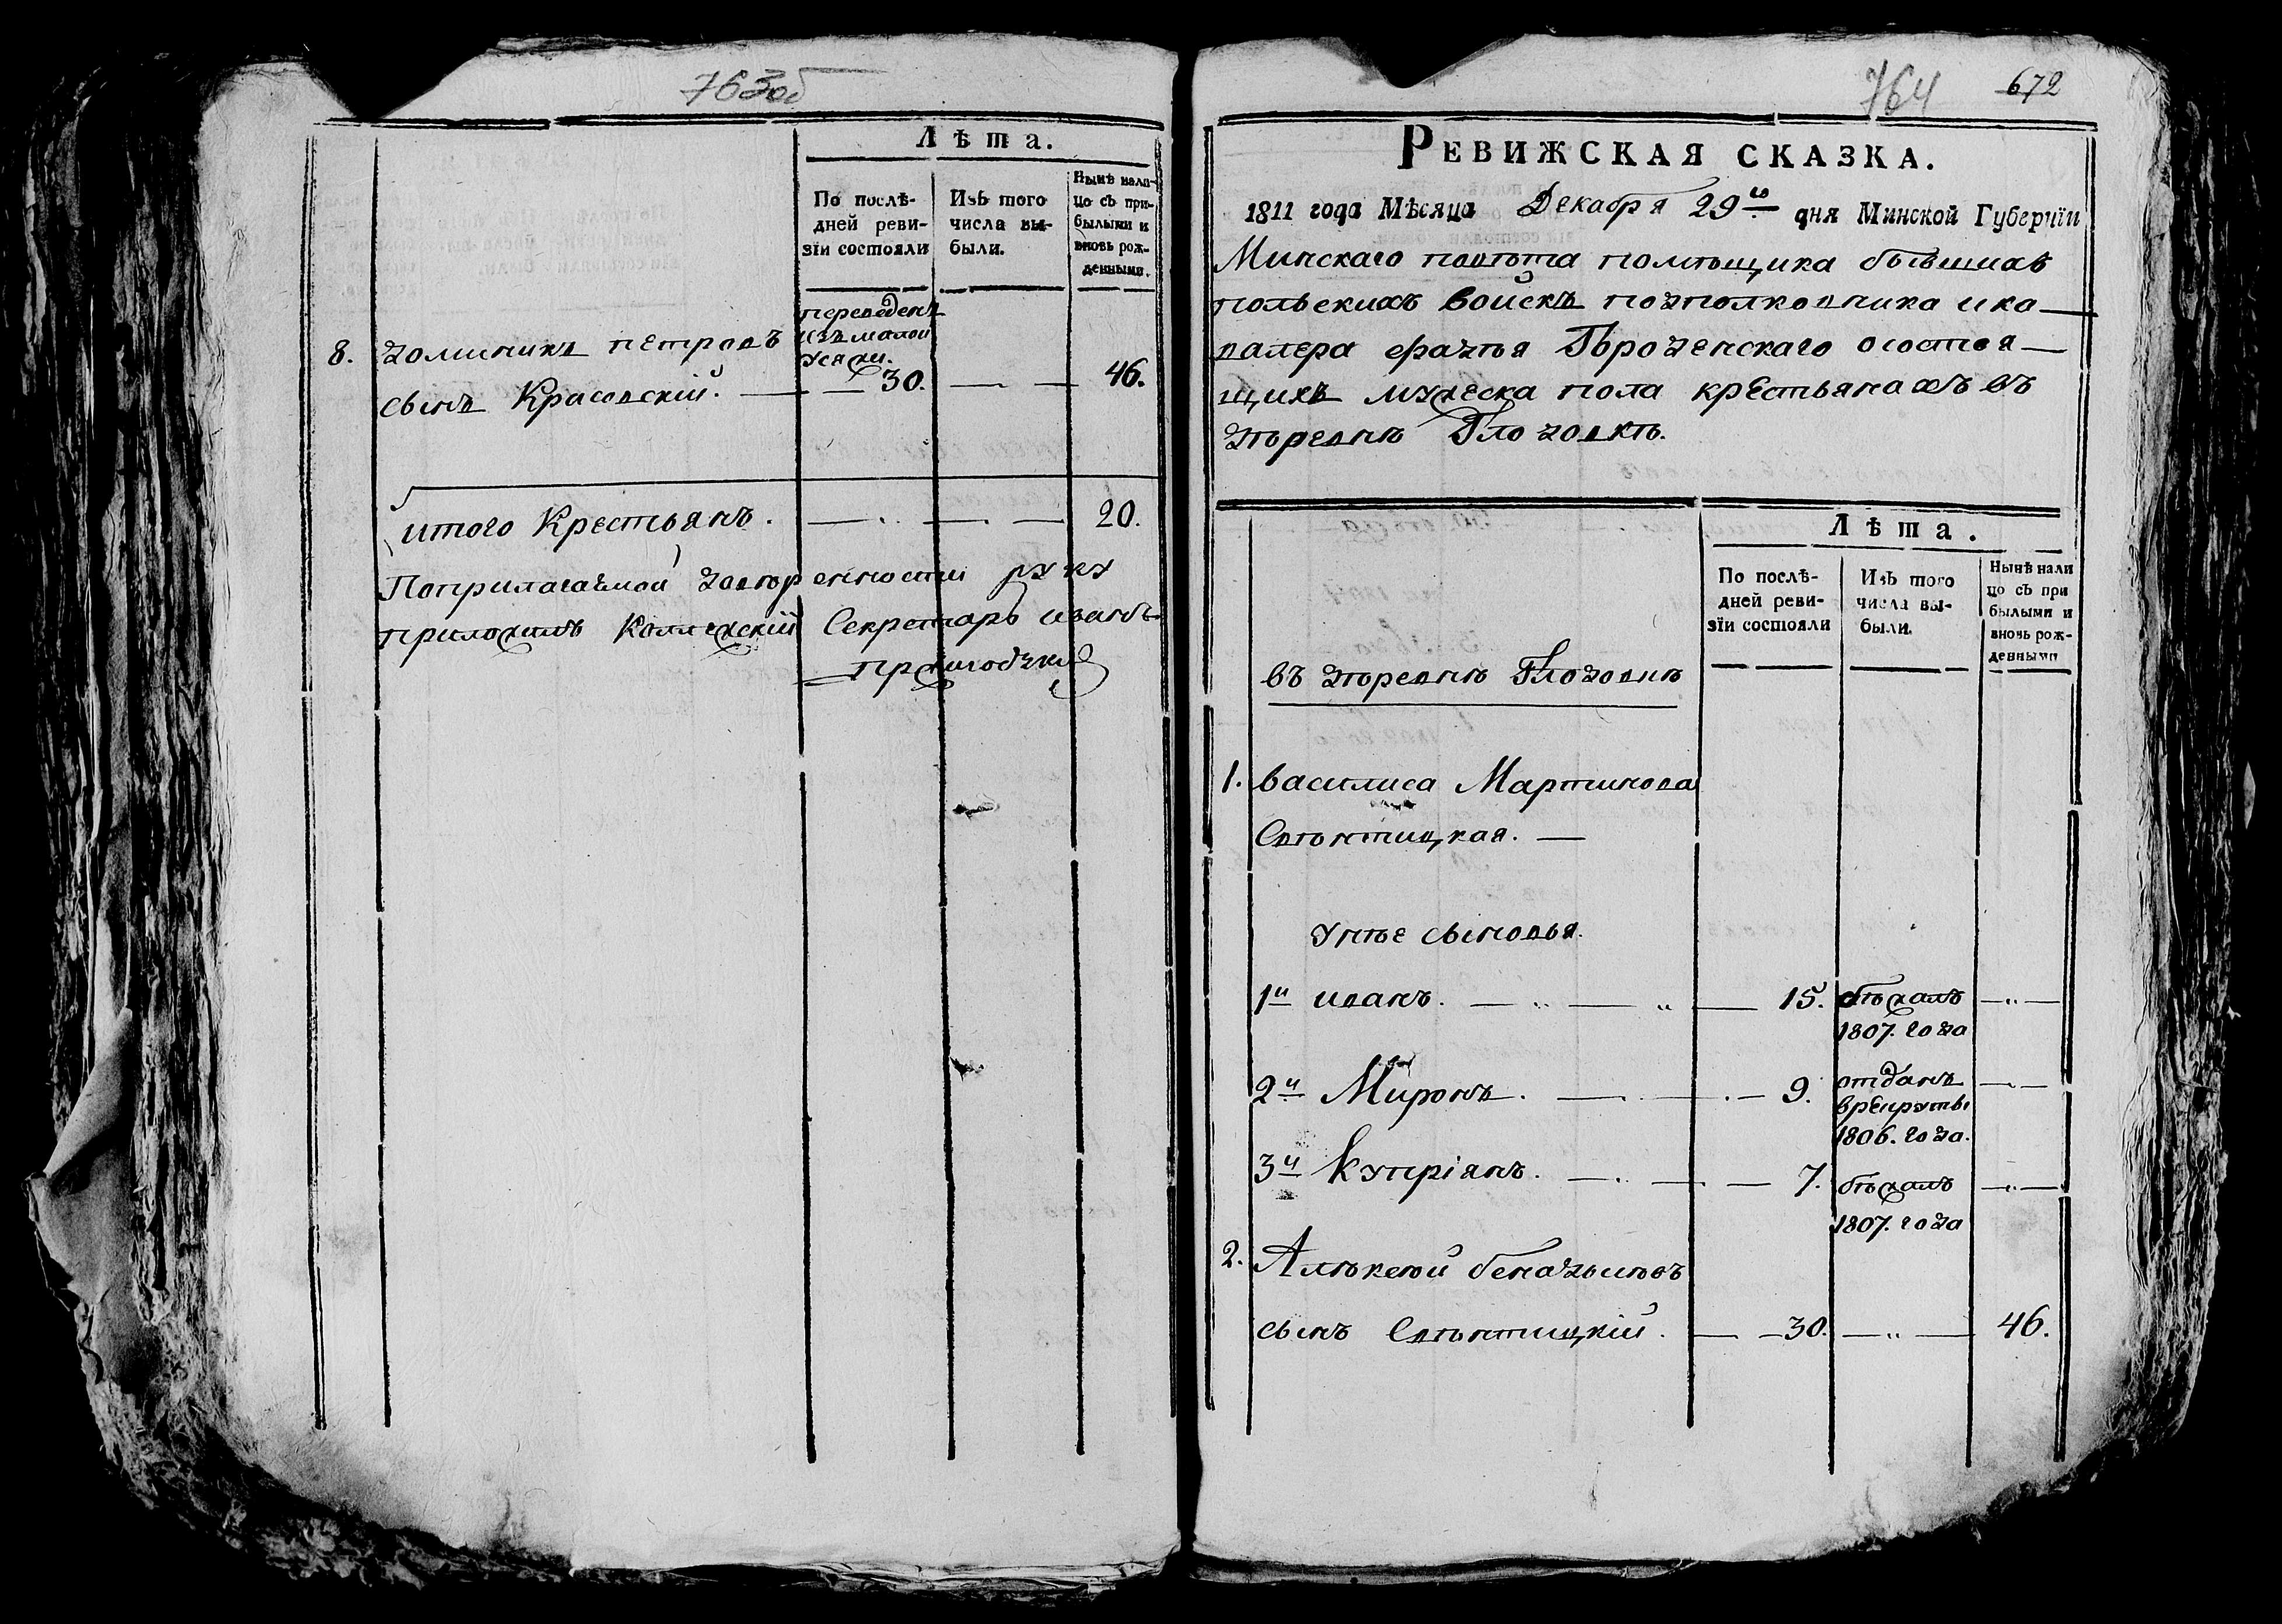 763об
Лѣта.
По послѣ-
дней реви-
зіи состояли
Изъ того
числа вы-
были.
Нынѣ нали-
цо съ при-
былыми и
вновь рож-
денными.
8. Доминикъ Петровъ
сынъ Красовскій.
переведенъ
изъ малой
30.
46.
итого Крестьянъ. 20.
Поприлагаемой доверенности руку
приложилъ Коллежскій Секретарь Иванъ
764
672
Ревижская сказка.
1811 года Мѣсяца Декабря 29го дня Минской Губерніи
Минскаго повѣта помѣщика бывшихъ
польскихъ войскъ подполковника и ка-
валера состоя-
щихъ мужеска пола крестьянахъ въ
деревнѣ
Лѣта.
По послѣ-
дней реви-
зіи состояли
Изъ того
числа вы-
были.
Нынѣ нали
цо съ при
былыми и
вновь рож-
денными
въ деревнѣ
1. Василиса Мартинова
Свѣнтицкая.
У нѣе сыновья.
1й Иванъ. 15. бѣжалъ
1807. года
2й Миронъ. 9. отданъ
в рекруты
1806. года.
3й Купріанъ. 7. бѣжалъ
1807. года
2.
сынъ Свѣнтицкій. 30. 46.